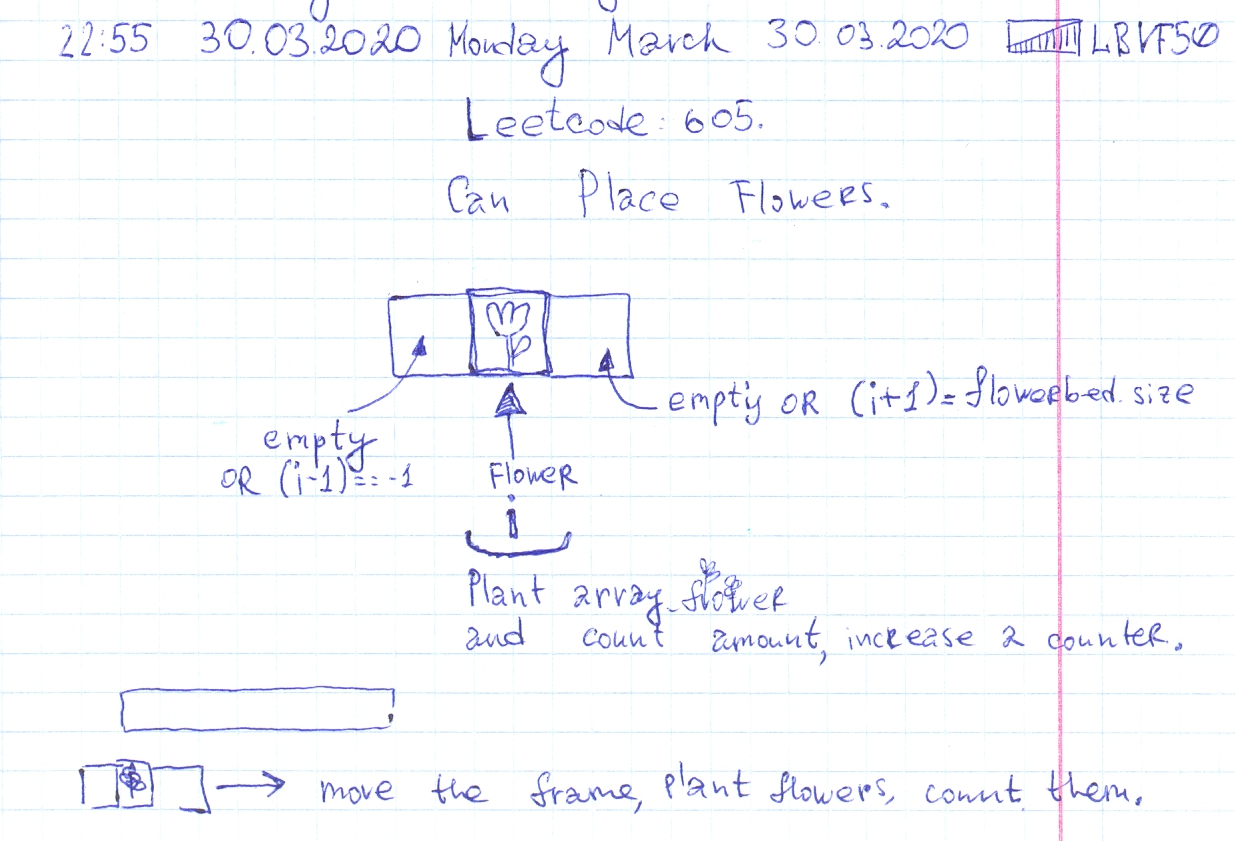 22:55 30.03.2020 Monday March 30.03.2020 LBVF50
Leetcode: 605.
Can Place Flowers.
empty OR (i+1)= flowerbed.size
empty
OR (i-1)== -1
Flower
i
Plant array flower
and count amount, increase a counter.
move the frame, plant flowers, count them.